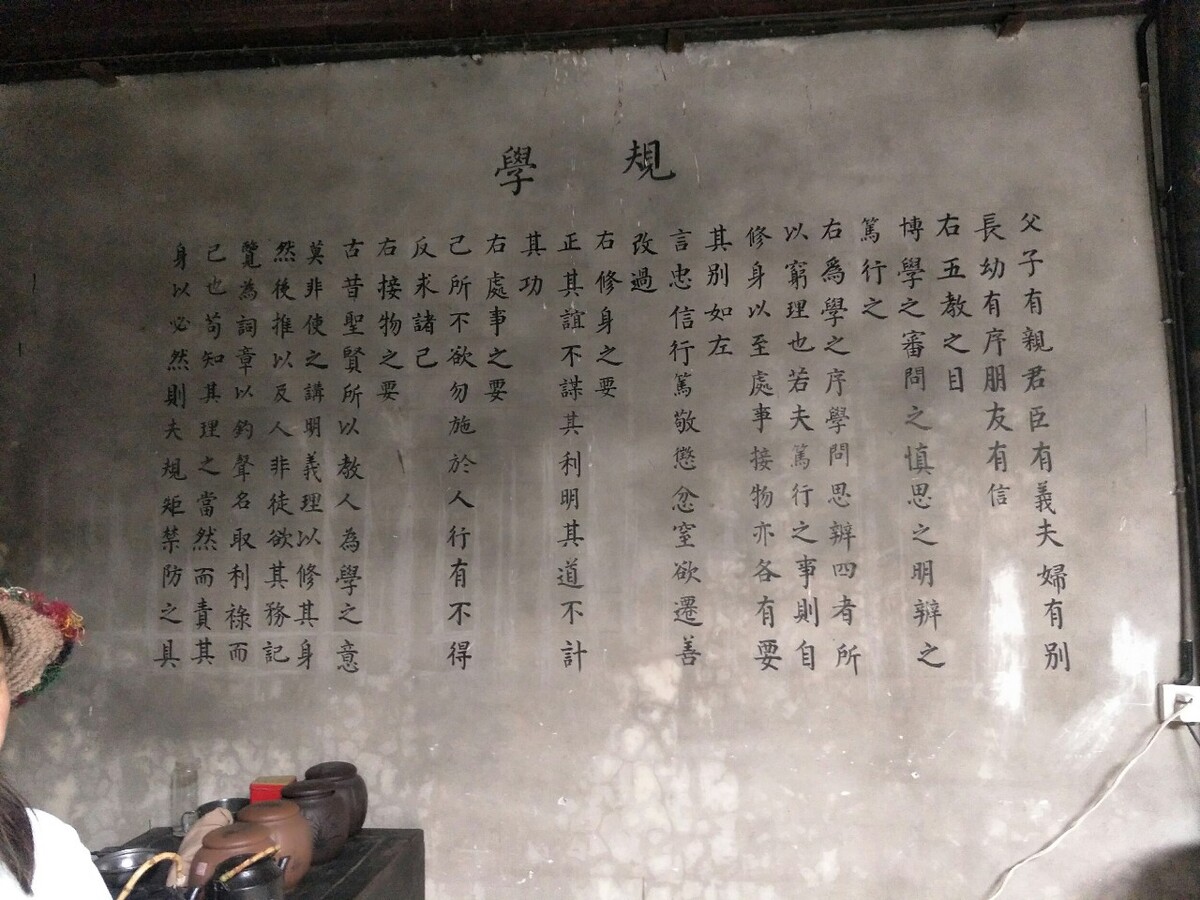 學規
父子有親君臣有義夫婦有別
長幼有序朋友有信
右五教之目
博學之審問之慎思之明辨之
篤行之
右爲學之序學問思辨四者所
以窮理也若夫篤行之事則自
修身以至處事接物亦各有要
其別如左
言忠信行篤敬懲忿窒欲遷善
改過
右修身之要
正其誼不謀其利明其道不計
其功
右處事之要
己所不欲勿施於人行有不得
反求諸己
右接物之要
古昔聖賢所以教人為學之意
莫非使之講明義理以修其身
然後推以及人非徒欲其務記
覽為詞章以釣聲名取利祿而
已也苟知其理之當然而責其
身以必然則夫規矩禁防之具